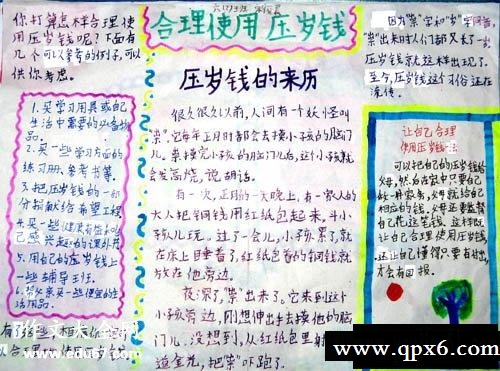 合理使用压岁钱
你打算怎样合理使
用压岁钱呢？下面有
几个可以参考的例子，可以
供你考虑。
1.买学习用具或自己
生活中需要的必备物
品。
2.买一些学习方面的
练习册、参考书等。
3.把压岁钱的一部
分捐献给希望工程
4.买一些
感兴趣的课外书
5.用自己的压岁钱上
一些辅导班。
6.
活用品。
压岁钱的来历
很久很久以前，人间有一个妖怪叫
“祟”，它每年正月时都会去摸小孩的脑门
儿。祟摸完小孩的脑门儿后，这个小孩就
会发高烧，说胡话。
有一次，正月的一天晚上，有一家人的
大人把铜钱用红纸包起来，斗小
孩儿玩。过了一会儿，小孩累了，就
在床上睡着了，红纸包着的铜钱就
放在他旁边。
夜深了，“祟”出来了。它来到这个
小孩旁边，刚想伸出手去摸他的脑
门儿。没想到，从红纸包里射
道金光，把“祟”吓跑了。
因为“祟”字和“岁”字同音，
“祟”出来时人们都又长了一岁，
压岁钱就这样出现了。
至今，压岁钱这个习俗还在
流传。
让自己合理
使用压岁钱法
可以把自己的压岁钱给
父母，然后在家中只要自己
做一件家务，父母就给自己
相应的钱。父母还要监督
自己花这笔钱。这样既
让自己合理使用压岁钱，
还让自己懂得只要有付出，
才会有回报。
www.edu67.com
www.qpx6.com